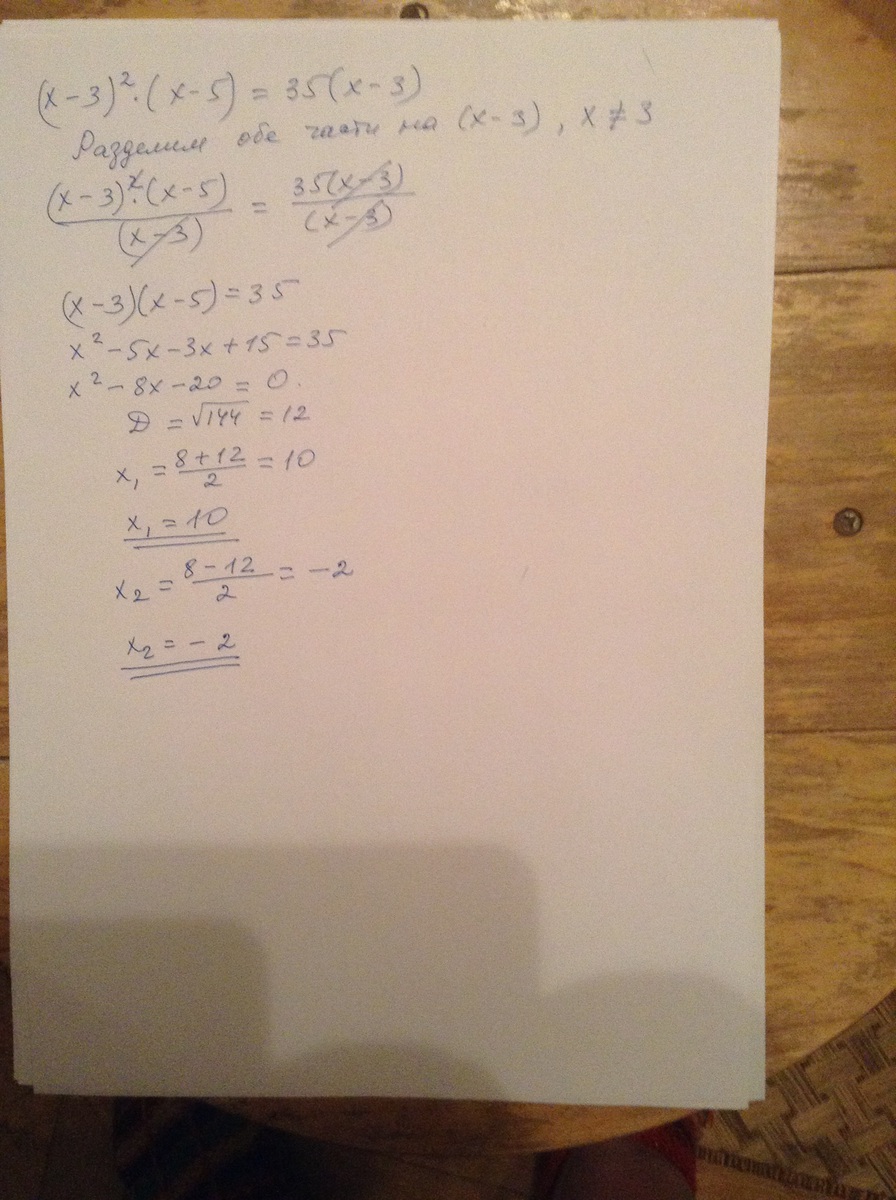 (x-3)²·(x-5) = 35(x-3)
Разделим обе части на (x-3), x ≠ 3
(x-3)²·(x-5)/(x-3) = 35(x-3)/(x-3)
(x-3)(x-5)=35
x²-5x-3x+15=35
x²-8x-20=0.
D = √144 = 12
x₁ = (8+12)/2 = 10
x₁ = 10
x₂ = (8-12)/2 = -2
x₂ = -2